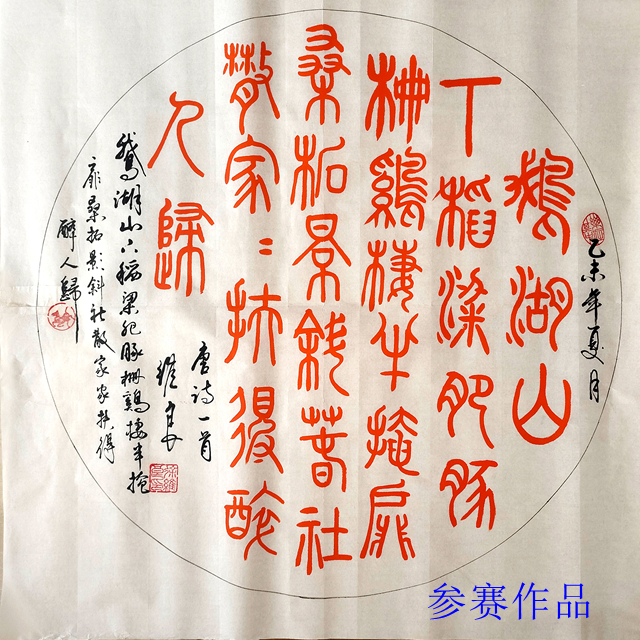 乙未年夏月
鵝湖山
丅稻梁肥豚
柵鷄棲半掩扉
桑柘景斜春社
散家〻扶得醉
人歸
唐诗一首
鵝湖山下稻梁肥豚栅鷄棲半掩
扉桑柘影斜社散家家扶得
醉人歸
参赛作品